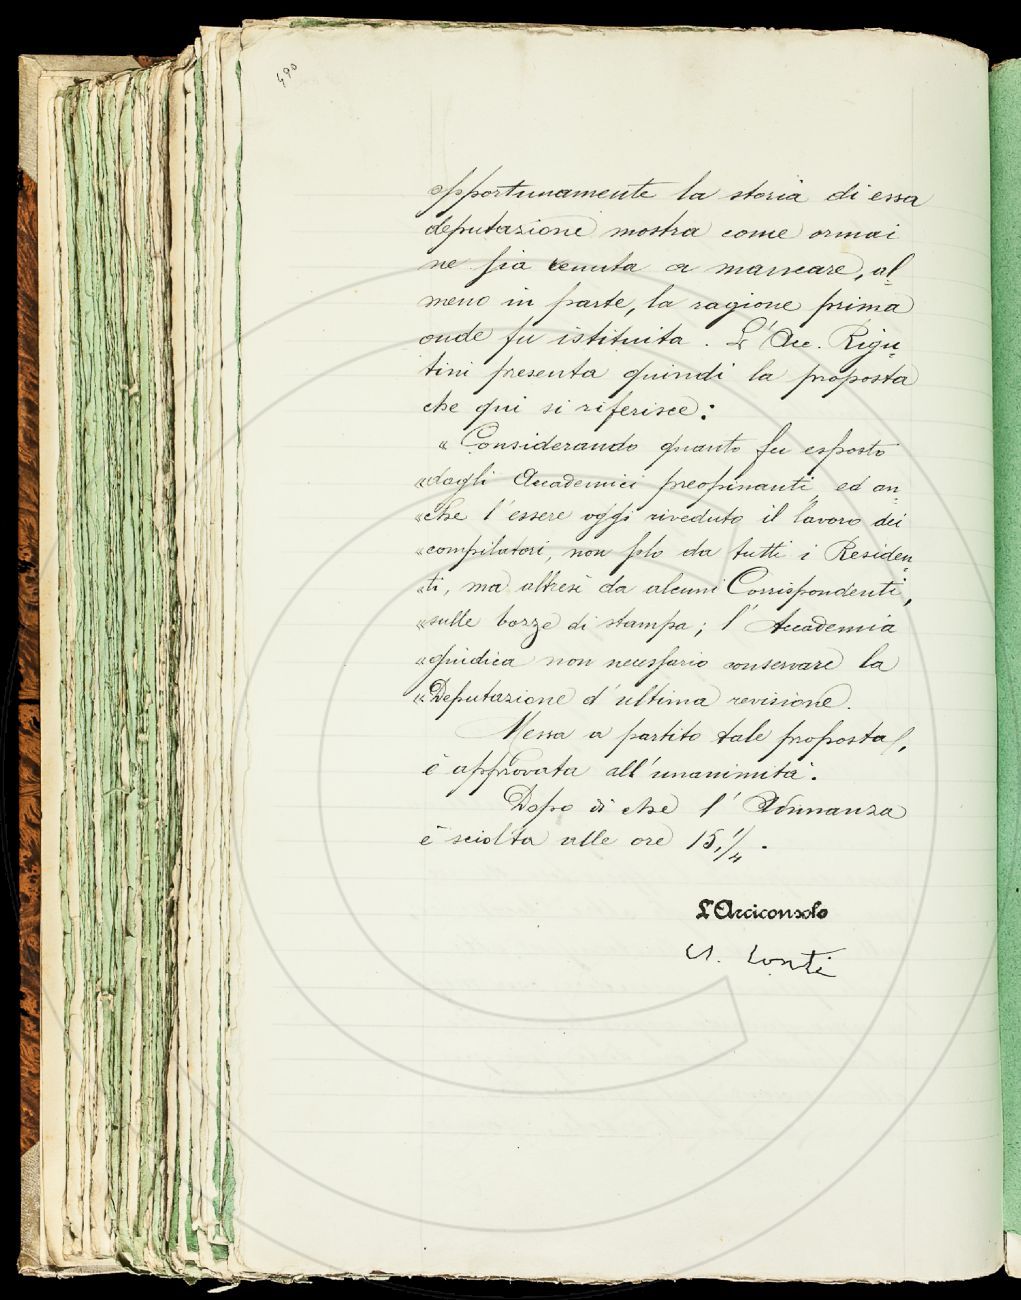 490
opportunamente la storia di essa
deputazione mostra come ormai
ne sia venuta a mancare, al=
meno in parte, la ragione prima
onde fu istituita. L'Acc. Rigu=
tini presenta quindi la proposta
che qui si riferisce:
" Considerando quanto fu esposto
"dagli Accademici preopinanti, ed an=
"che l'essere oggi riveduto il lavoro dei
"compilatori, non solo da tutti i Residen=
"ti, ma altresì da alcuni Corrispondenti,
"sulle bozze di stampa; l'Accademia
"giudica non necessario conservare la
"Deputazione d'ultima revisione.
Messa a partito tale proposta,
è approvata all'unanimità.
Dopo di che l'Adunanza
è sciolta alle ore 15,1/4.
L'Arciconsolo
A. Conti